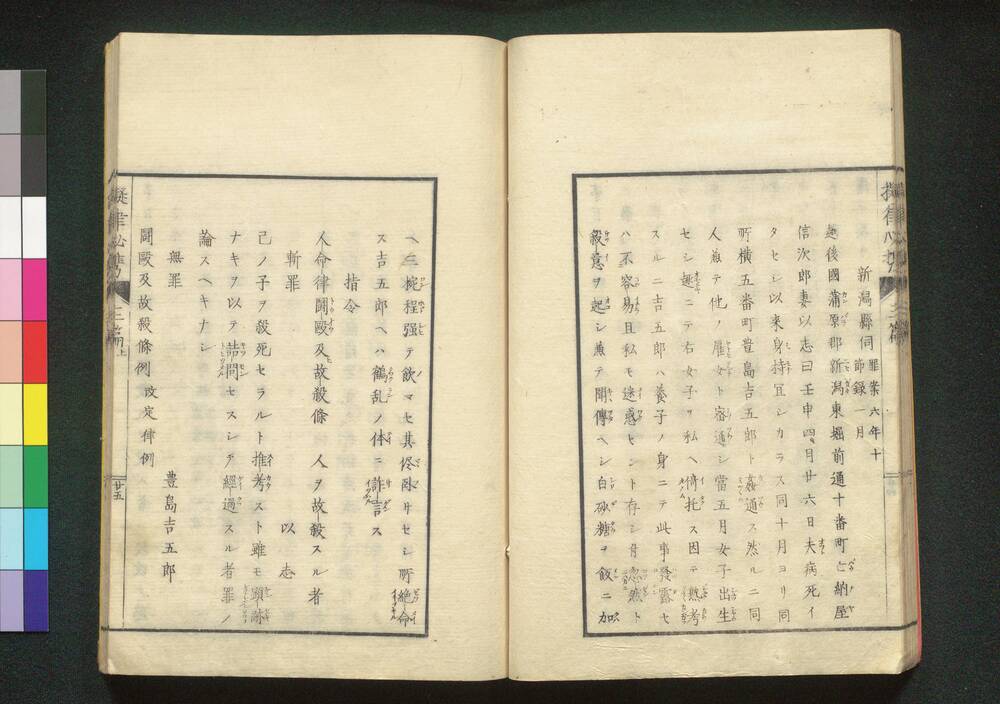 新潟縣伺 罪案六年十
節録一月
越後國蒲原郡新潟東堀前通十番町亡納屋
信次郎妻以志曰壬申四月廿六日夫病死イ
タセシ以来身持宜シカラス同十月ヨリ同
所横五番町豊島吉五郎ト姦通ス然ルニ同
人兼テ他ノ雇女ト密通シ當五月女子出生
セシ趣ニテ右女子ヲ私ヘ倚托ス因テ熟考
スルニ吉五郎ハ養子ノ身ニテ此事發露セ
ハ不容易且私モ迷惑セント存シ忽然ト
殺意ヲ起シ兼テ聞傳ヘシ白砂糖ヲ飯ニ加
ヘ三椀程强テ飲マセ其侭臥サセシ所絶命
ス吉五郎ヘハ霍乱ノ体ニ詐言ス
指令
人命律鬪毆及故殺條 人ヲ故殺スル者
斬罪 以志
己ノ子ヲ殺死セラルト推考スト雖モ顕跡
ナキヲ以テ詰問セスシテ經過スル者罪ノ
論スヘキナシ
無罪 豊島吉五郎
鬪毆及故殺條例 改定律例
擬律必携 三篇上 廿五